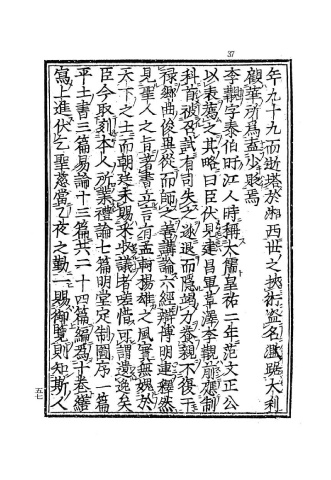 37
年九十九而逝塔於湘西世之挾術盜名誑瞎大利
顧華所爲孟少貶焉
李覯字泰伯盱江人時稱大儒皇祐二年范文正公
以表薦之其略曰臣伏見建昌軍草澤李覯前應制
科首被召試有司失之遂退而隱竭力養親不復干
祿鄉曲俊異從而師之善講論六經辨博明達釋然
見聖人之旨著書立言有孟軻揚雄之風實無媿於
天下之士而朝廷未賜采收議者嗟惜可謂遺逸矣
臣今取到本人所業禮論七篇明堂定制圖序一篇
平土書三篇易論十三篇共二十四篇編爲十卷繕
寫上進伏乞聖慈當乙夜之勤一賜御覽則知斯人
五七